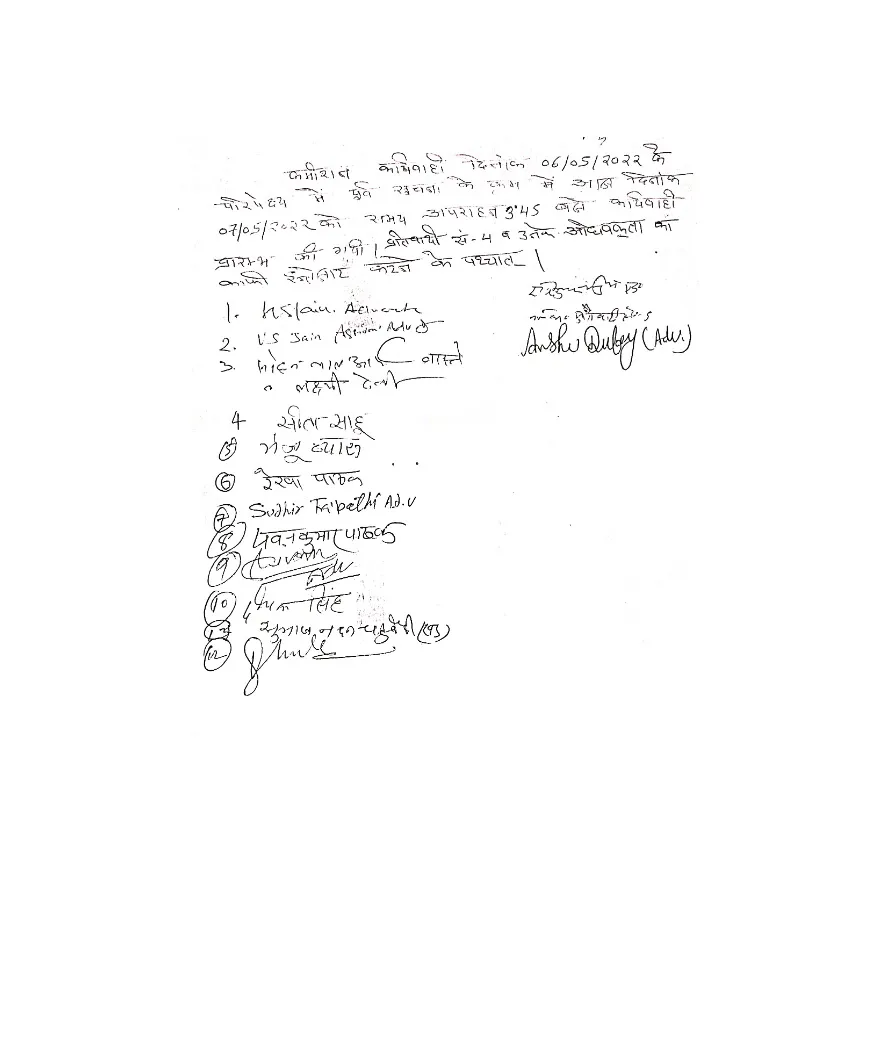 कमीशन कार्यवाही दिनांक 06/05/2022 के
परिपेक्ष्य में पूर्व सूचना के क्रम में आज दिनांक
07/05/2022 को समय अपराहन 3:45 बजे कार्यवाही
प्रारम्भ की गयी। प्रतिवादी सं-4 व उनके अधिवक्ता का
काफी इंतजार करने के पश्चात।
1. H S Jain. Advocate
2. V S Jain Adv
3. मोहन लाल आर्य वास्ते
लक्ष्मी देवी
4 सीता साहू
5 मंजू व्यास
6 रेखा पाठक
7 Sudhir Tripathi Adv
8 पवन कुमार पाठक
9 Adv
10 सिंह
11 सुभाष नन्दन चतुर्वेदी (एड)
12
Anshu Dubey (Adv.)